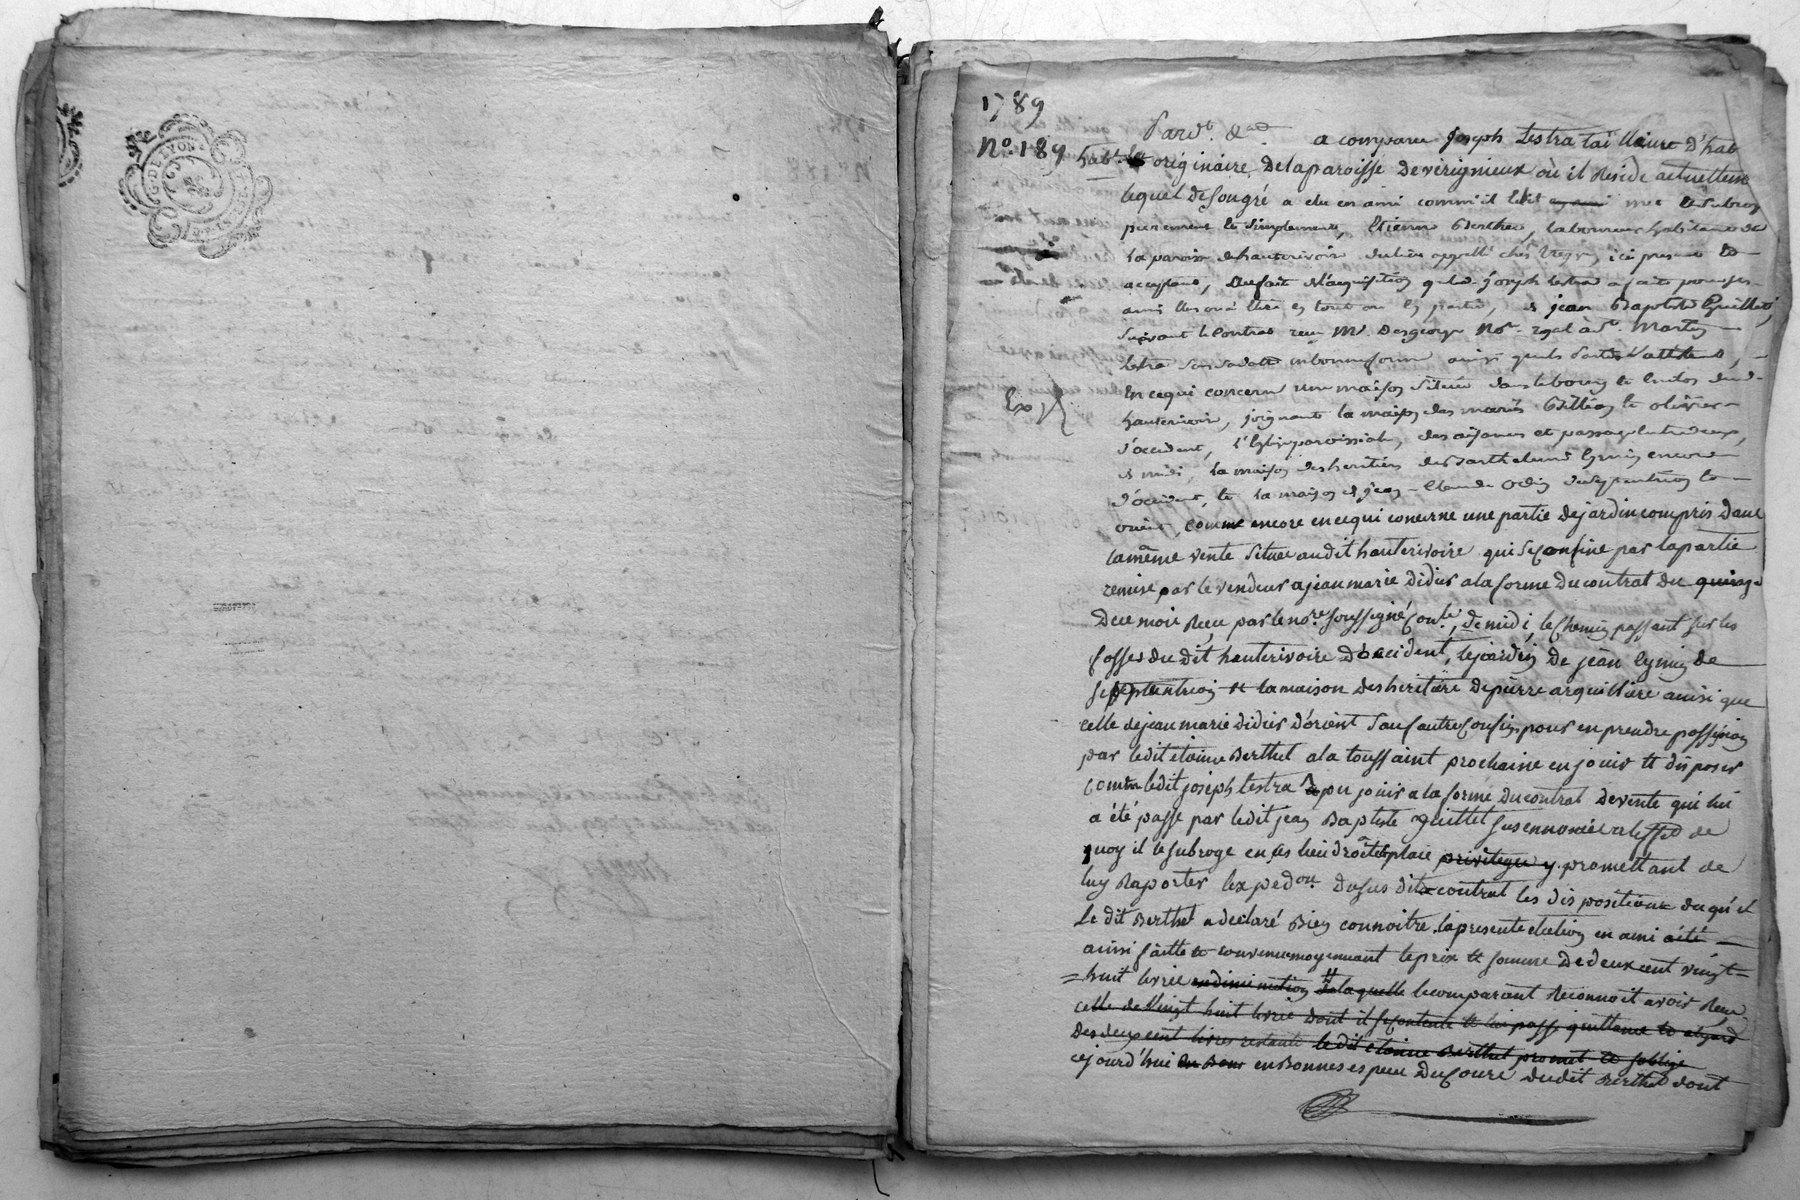 G. DE LYON
1789
N.º 189
Pardt. &ca a comparu joseph testra tailleure d'hab
habt. et originaire de la paroisse de verignieux ou il reside actuellem
lequel de son gré a elu en ami comm'il l'elit et subroge
purement et simplement, Etienne Berthet, laboureur habitant de
la paroisse de hauterivoire du lieu appellé chés ici present et
acceptant, de l'acquisition que led. joseph testra a faite pour ses
amis elus ou a elire en tout ou en partie, de jean Baptiste Guillet,
suivant le contrat reçu Me. Desgeorge Nore. royal à St. Martin
letra sous sa datte en bonne forme ainsi que les parties l'attestent,
En ce qui concerne une maison située dans le bourg et enclos dud.
hauterivoire, joignant la maison des mariés Billion et olivier
d'occident, l'Eglise paroissiale, des aisances et passage entre deux,
de midi, la maison des heritiers de Barthelemi eymin encore
d'occident, et la maison de jean Claude Odin de septentrion et
orient, comme encore en ce qui concerne une partie de jardin compris dans
la même vente située audit hauterivoire qui se confine par la partie
remise par le vendeur a jean marie didier a la forme du contrat du quinze
de ce mois reçu par le nore. soussigné cont., de midi, le chemin passant sur les
fosses du dit hauterivoire d'occident, le jardin de jean eymin de
septentrion et la maison des heritiers de pierre arquilliere ainsi que
celle de jean marie didier d'orient sauf autre confin pour en prendre possession
par ledit etienne Berthet a la toussaint prochaine en jouir et disposer
comme ledit joseph testra a pu jouir a la forme du contrat de vente qui lui
a été passé par ledit jean Baptiste guillet susennoncé a l'effet de
quoy il le subroge en ses lieu droits place privileges y promettant de
luy raporter l'expedon. du sus dit contrat les dispositions duquel
le dit Berthet a declaré bien connoitre. la presente election en ami a été
ainsi faitte et convenu moyennant le prix et somme de deux cent vingt
huit livres en diminution de laquelle le comparant reconnoit avoir reçu
celle de vingt huit livres dont il se contente et lui passe quittance et a l'egard
des deux cent livres restants le dit etienne Berthet promet et s'oblige
cejourd'hui en bonnes especes du cours dudit Berthet dont
Exp.